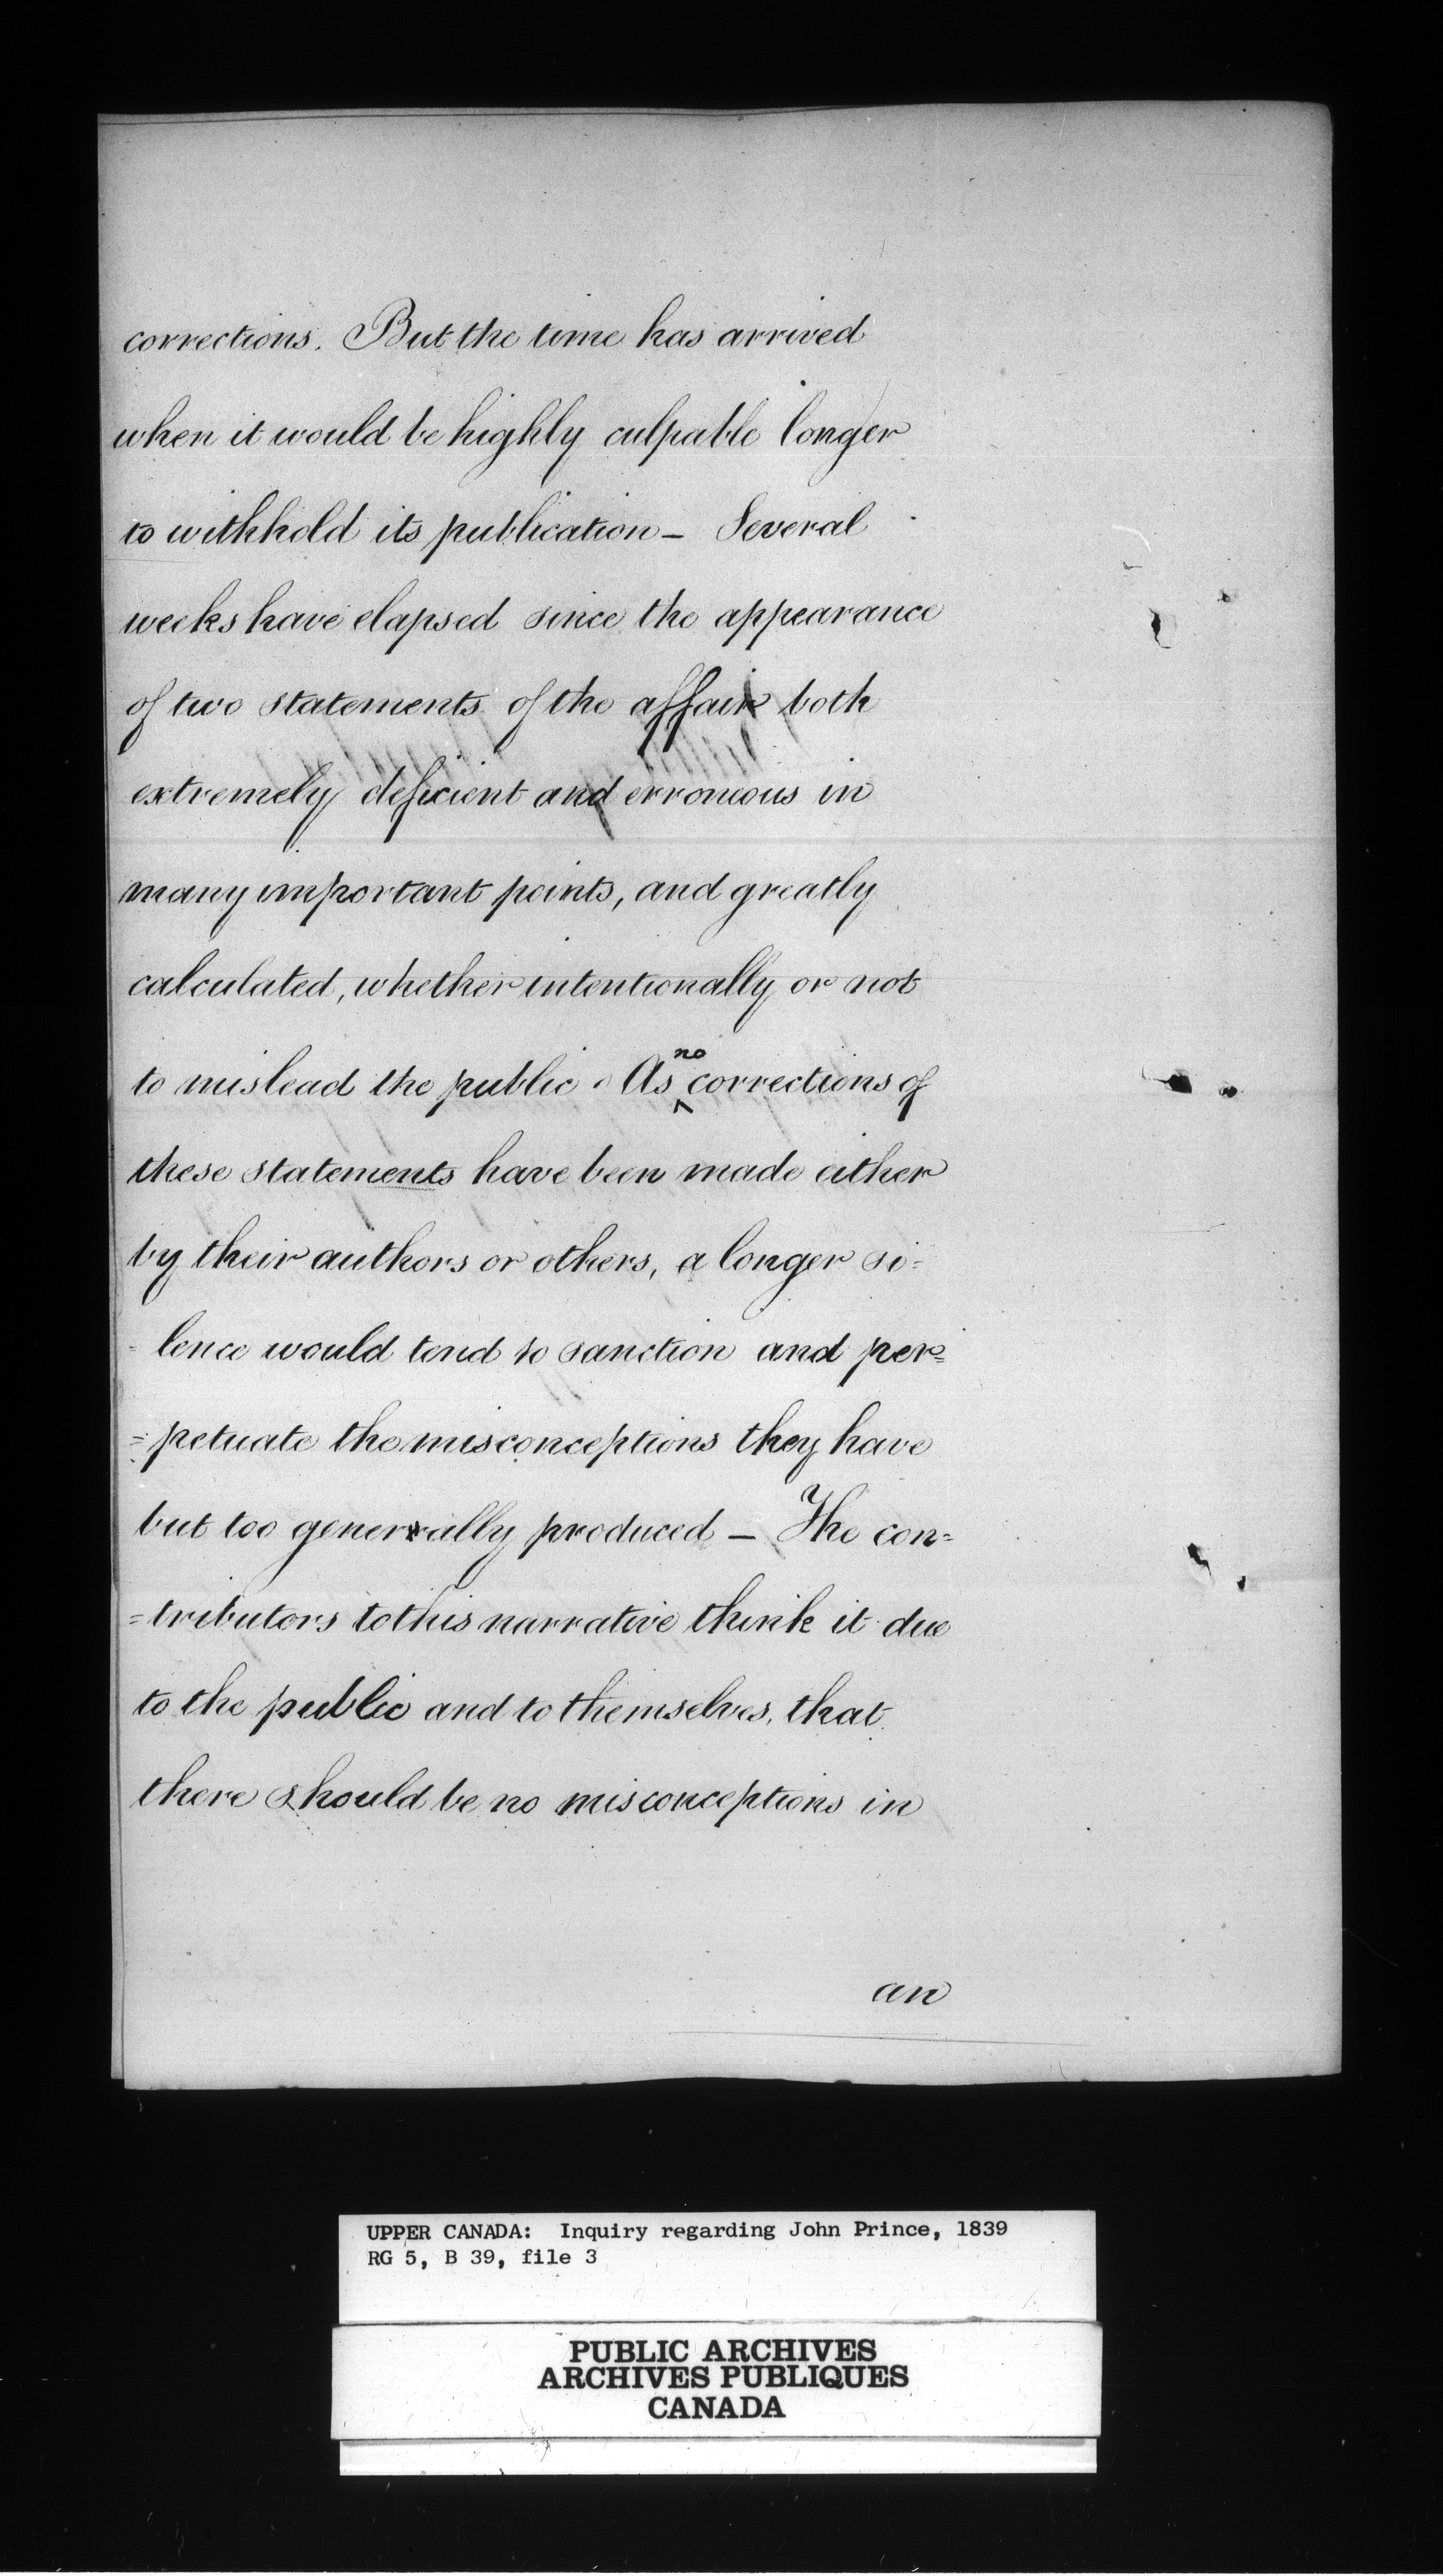 corrections. But the time has arrived
when it would be highly culpable longer
to withhold its publication — Several
weeks have elapsed since the appearance
of two statements of the affair both
extremely deficient and erroneous in
many important points, and greatly
calculated, whether intentionally or not
no
to mislead the public. As ^ corrections of
these statements have been made either
by their authors or others, a longer si=
=lence would tend to sanction and per=
=petuate the misconceptions they have
but too generally produced — The con=
=tributors to this narrative think it due
to the public and to themselves, that
there should be no misconceptions in
an
UPPER CANADA: Inquiry regarding John Prince, 1839
RG 5, B 39, file 3
PUBLIC ARCHIVES
ARCHIVES PUBLIQUES
CANADA